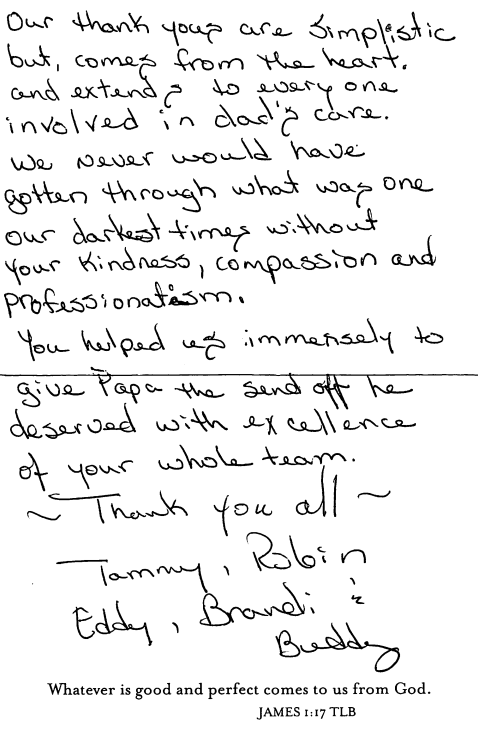 Our thank yous are simplistic
but, comes from the heart.
and extends to every one
involved in dad's care.
We never would have
gotten through what was one
our darkest times without
your kindness, compassion and
professionalism.
You helped us immensely to
give Papa the send off he
deserved with excellence
of your whole team.
~ Thank you all ~
Tammy, Robin
Eddy, Brandi &
Buddy
Whatever is good and perfect comes to us from God.
JAMES 1:17 TLB